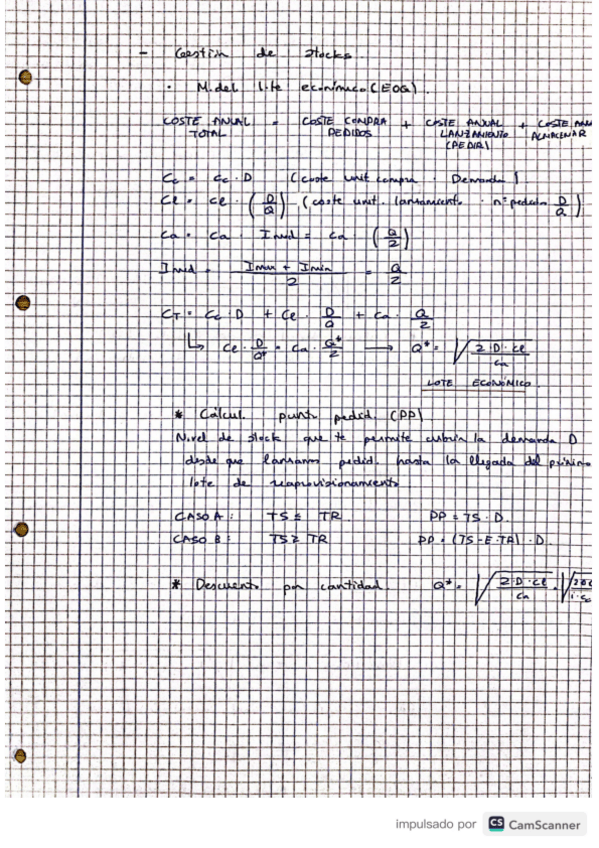 - Gestión de stocks
· Modelo lote económico (EOQ).
COSTE ANUAL TOTAL = COSTE COMPRA PEDIDOS + COSTE ANUAL LANZAMIENTO (PEDIR) + COSTE ANUAL ALMACENAR
Cc = cc · D (coste unit compra · Demanda)
Cl = cl · (D/Q) (coste unit. lanzamiento · nº pedidos D/Q)
Ca = ca · Imed = ca · (Q/2)
Imed = Imax + Imin / 2 = Q/2
CT = Cc · D + Cl · D/Q + Ca · Q/2
↳ Cl · D/Q* = Ca · Q*/2 → Q* = √(2·D·cl / ca)
LOTE ECONÓMICO.
* Cálculo punto pedido (PP)
Nivel de stock que te permite cubrir la demanda D
desde que lanzamos pedido hasta la llegada del próximo
lote de reaprovisionamiento
CASO A: TS ≤ TR. PP = TS · D.
CASO B: TS ≥ TR PP = (TS - E · TR) · D.
* Descuento por cantidad. Q* = √(2·D·cl / ca)
impulsado por CS CamScanner